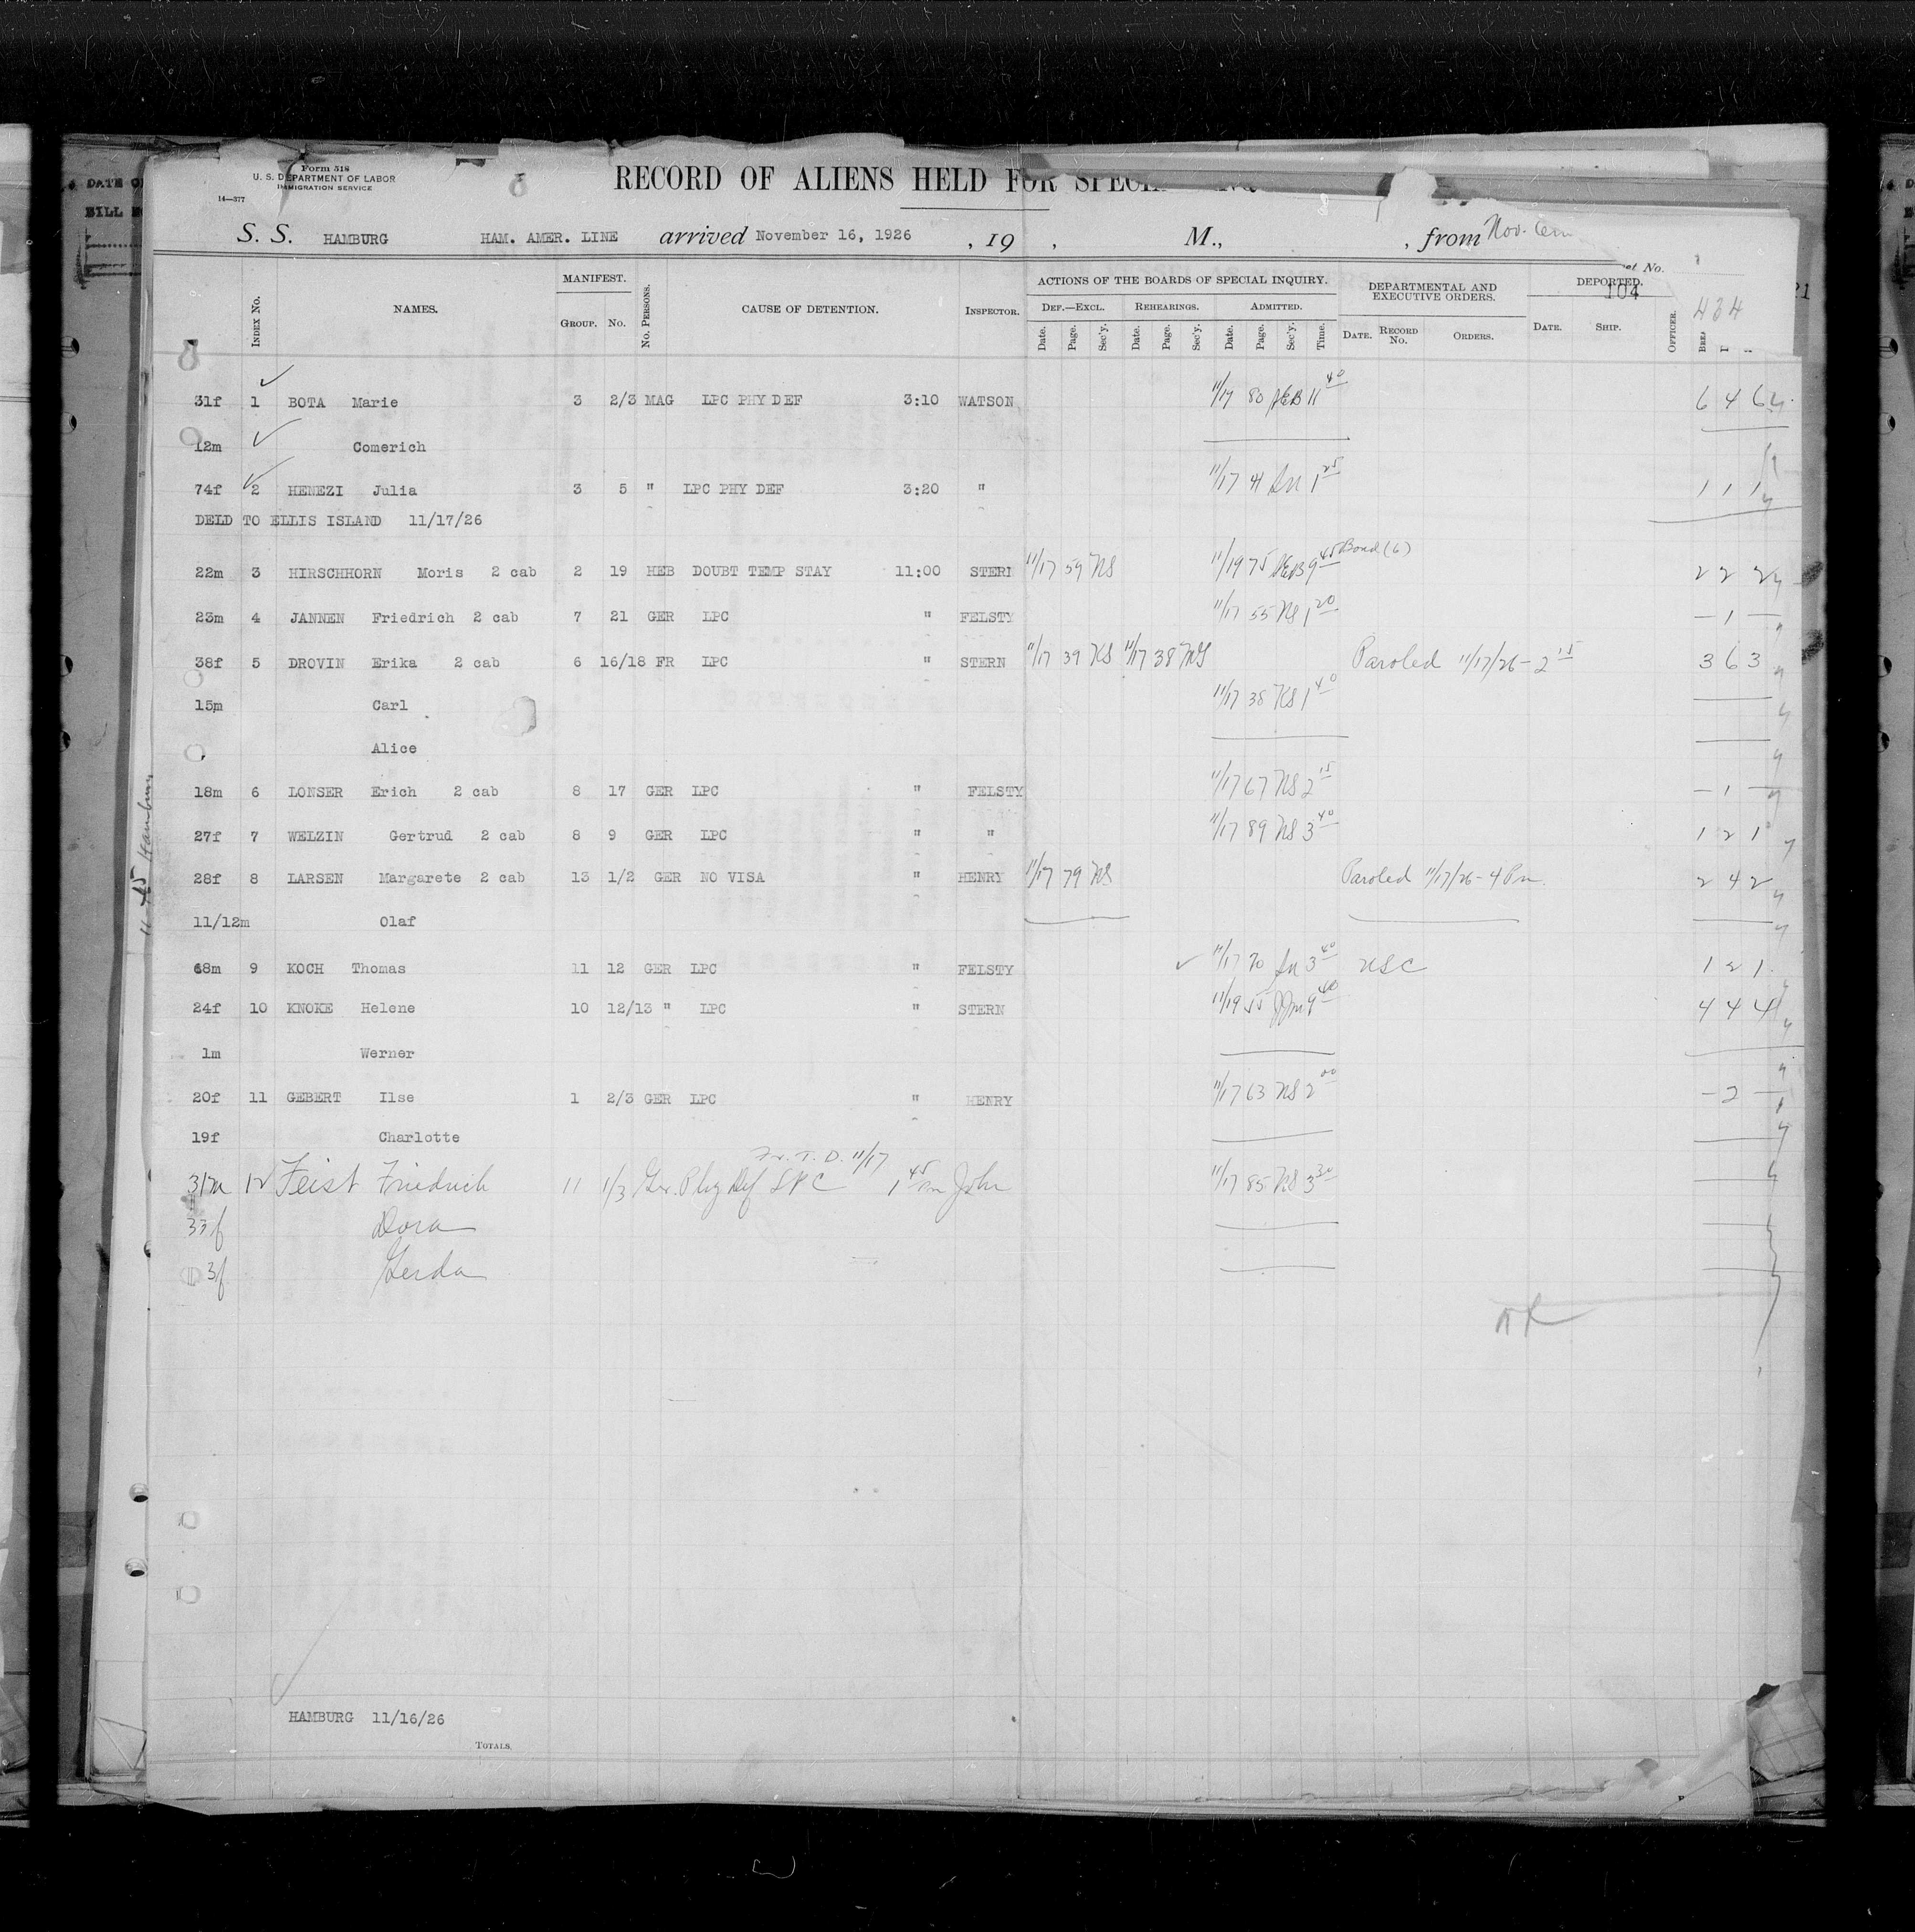 Form 518
U. S. DEPARTMENT OF LABOR
IMMIGRATION SERVICE
14—377
RECORD OF ALIENS HELD FOR
S. S. HAMBURG HAM. AMER. LINE arrived November 16, 1926 , 19 , M., , from Nov.
No.
104
434
INDEX No. NAMES. MANIFEST. GROUP. No. No. PERSONS. CAUSE OF DETENTION. INSPECTOR. ACTIONS OF THE BOARDS OF SPECIAL INQUIRY. DEF.—EXCL. REHEARINGS. ADMITTED. Date. Page. Sec'y. Date. Page. Sec'y. Date. Page. Sec'y. Time. DEPARTMENTAL AND EXECUTIVE ORDERS. DATE. RECORD No. ORDERS. DEPORTED. DATE. SHIP. OFFICER.
31f 1 BOTA Marie 3 2/3 MAG LPC PHY DEF 3:10 WATSON 11/17 80 11 40 6 4 6
12m Comerich
74f 2 HENEZI Julia 3 5 " LPC PHY DEF 3:20 " 11/17 41 1 25 1 1 1
DELD TO ELLIS ISLAND 11/17/26
22m 3 HIRSCHHORN Moris 2 cab 2 19 HEB DOUBT TEMP STAY 11:00 STERN 11/17 59 NS 11/19 75 9 45 Bond (6) 2 2 2
23m 4 JANNEN Friedrich 2 cab 7 21 GER LPC " FELSTY 11/17 55 NS 1 20 — 1 —
38f 5 DROVIN Erika 2 cab 6 16/18 FR LPC " STERN 11/17 39 NS 11/17 38 NS Paroled 11/17/26 – 2 15 3 6 3
15m Carl 11/17 38 NS 1 40
Alice
18m 6 LONSER Erich 2 cab 8 17 GER LPC " FELSTY 11/17 67 NS 2 15 — 1 —
27f 7 WELZIN Gertrud 2 cab 8 9 GER LPC " " 11/17 89 NS 3 40 1 2 1
28f 8 LARSEN Margarete 2 cab 13 1/2 GER NO VISA " HENRY 11/17 79 NS Paroled 11/17/26 – 4 Pm. 2 4 2
11/12m Olaf
68m 9 KOCH Thomas 11 12 GER LPC " FELSTY 11/17 70 3 40 1 2 1
24f 10 KNOKE Helene 10 12/13 " LPC " STERN 11/19 55 9 40 4 4 4
1m Werner
20f 11 GEBERT Ilse 1 2/3 GER LPC " HENRY 11/17 63 NS 2 00 — 2 —
19f Charlotte
Fr. T. D. 11/17
31m 12 Feist Friedrich 11 1/3 Ger. Phy Def LPC 1 45 Pm John 11/17 85 NS 3 30
33f Dora
3f Gerda
HAMBURG 11/16/26
TOTALS.